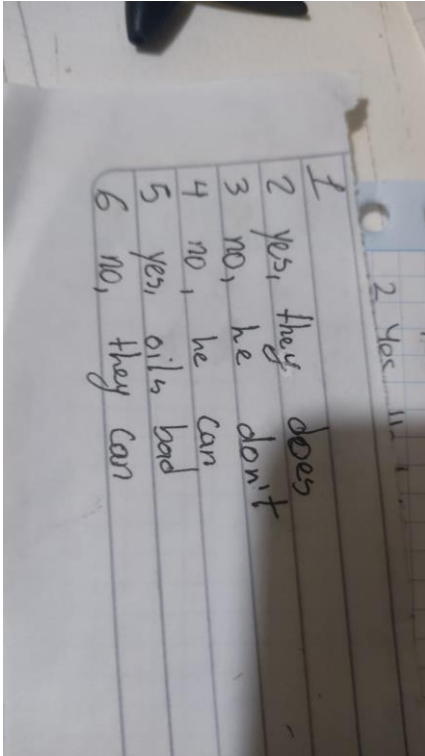 2 Yes
1
2 yes, they does
3 no, he don't
4 no, he can
5 yes, oils bad
6 no, they can